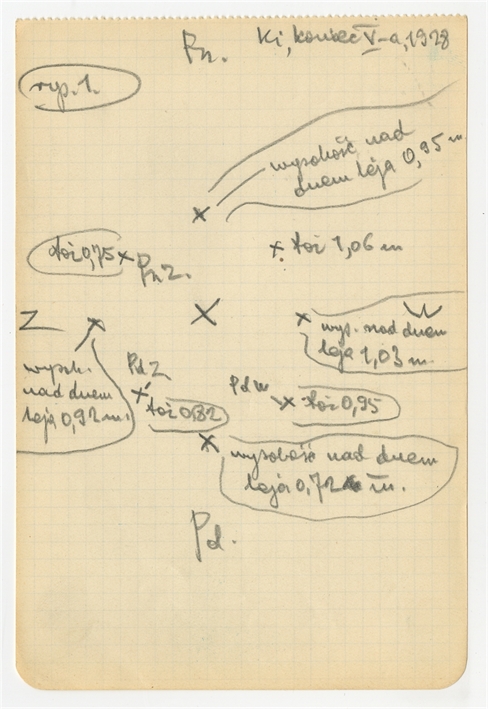 Pn.
Ki, koniec V-a, 1928
ryp. 1.
wysokość nad
dnem leja 0,95 m
też 0,75
Pn Z.
też 1,06 m
Z
W
wys. nad dnem
leja 1,03 m.
wysok.
nad dnem
leja 0,92 m.
Pd Z
też 0,82
Pd W
też 0,95
wysokość nad dnem
leja 0,72 m.
Pd.